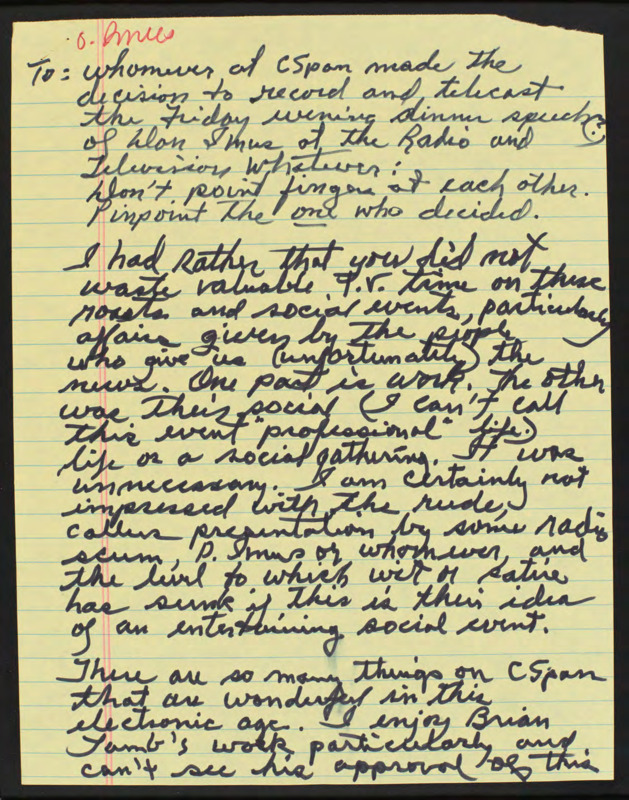 D. Imus
To: whomever at CSpan made the
decision to record and telecast
the Friday evening dinner speech
of Don Imus at the Radio and
Television Whatever:
Don't point fingers at each other.
Pinpoint the one who decided.
I had rather that you did not
waste valuable T.V. time on these
roasts and social events, particularly
affairs given by the people
who give us (unfortunately) the
news. One part is work. The other
was their social (I can't call
this event "professional" life.)
life or a social gathering. It was
unnecessary. I am certainly not
impressed with the rude,
callus presentation by some radio
scum, D. Imus or whomever, and
the level to which wit or satire
has sunk if this is their idea
of an entertaining social event.
There are so many things on CSpan
that are wonderful in this
electronic age. I enjoy Brian
Lamb's work particularly and
can't see his approval of this